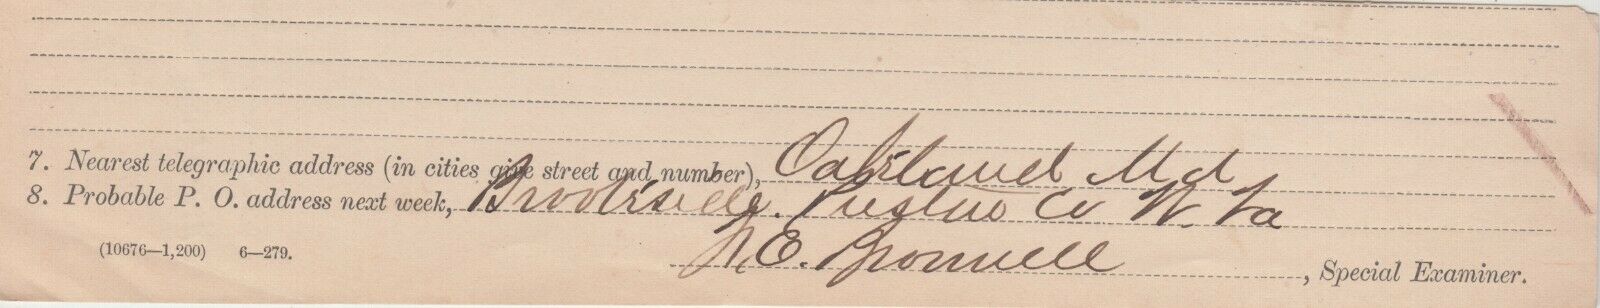 7. Nearest telegraphic address (in cities give street and number), Oakland Md
8. Probable P. O. address next week, Brookside. Preston Co W. Va
(10676—1,200) 6—279.
E. , Special Examiner.